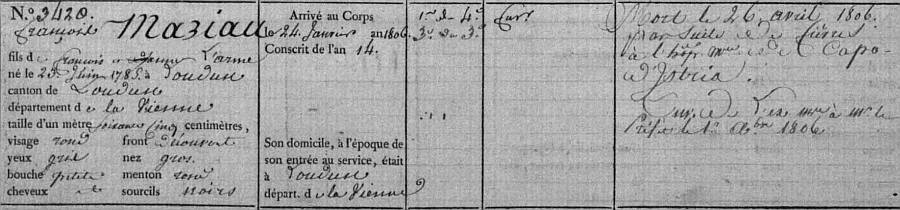 N.° 3420.
François Maziau
fils d e françois et Jeanne Larme
né le 25 Juin 1785 à Loudun
canton de Loudun
département d e la Vienne
taille d'un mètre soixante cinq centimètres,
visage rond front découvert
yeux gris nez gros
bouche petite menton rond
cheveux et sourcils noirs
Arrivé au Corps
le 24 Janvier an 1806.
Conscrit de l'an 14.
Son domicile, à l'époque de
son entrée au service, était
à Loudun
départ. d e la Vienne
1er de 4e
3e de 3e
Mort le 26 avril 1806.
par Suite de fièvres
à l'hôp. de Capo-
d'Istria.
1806